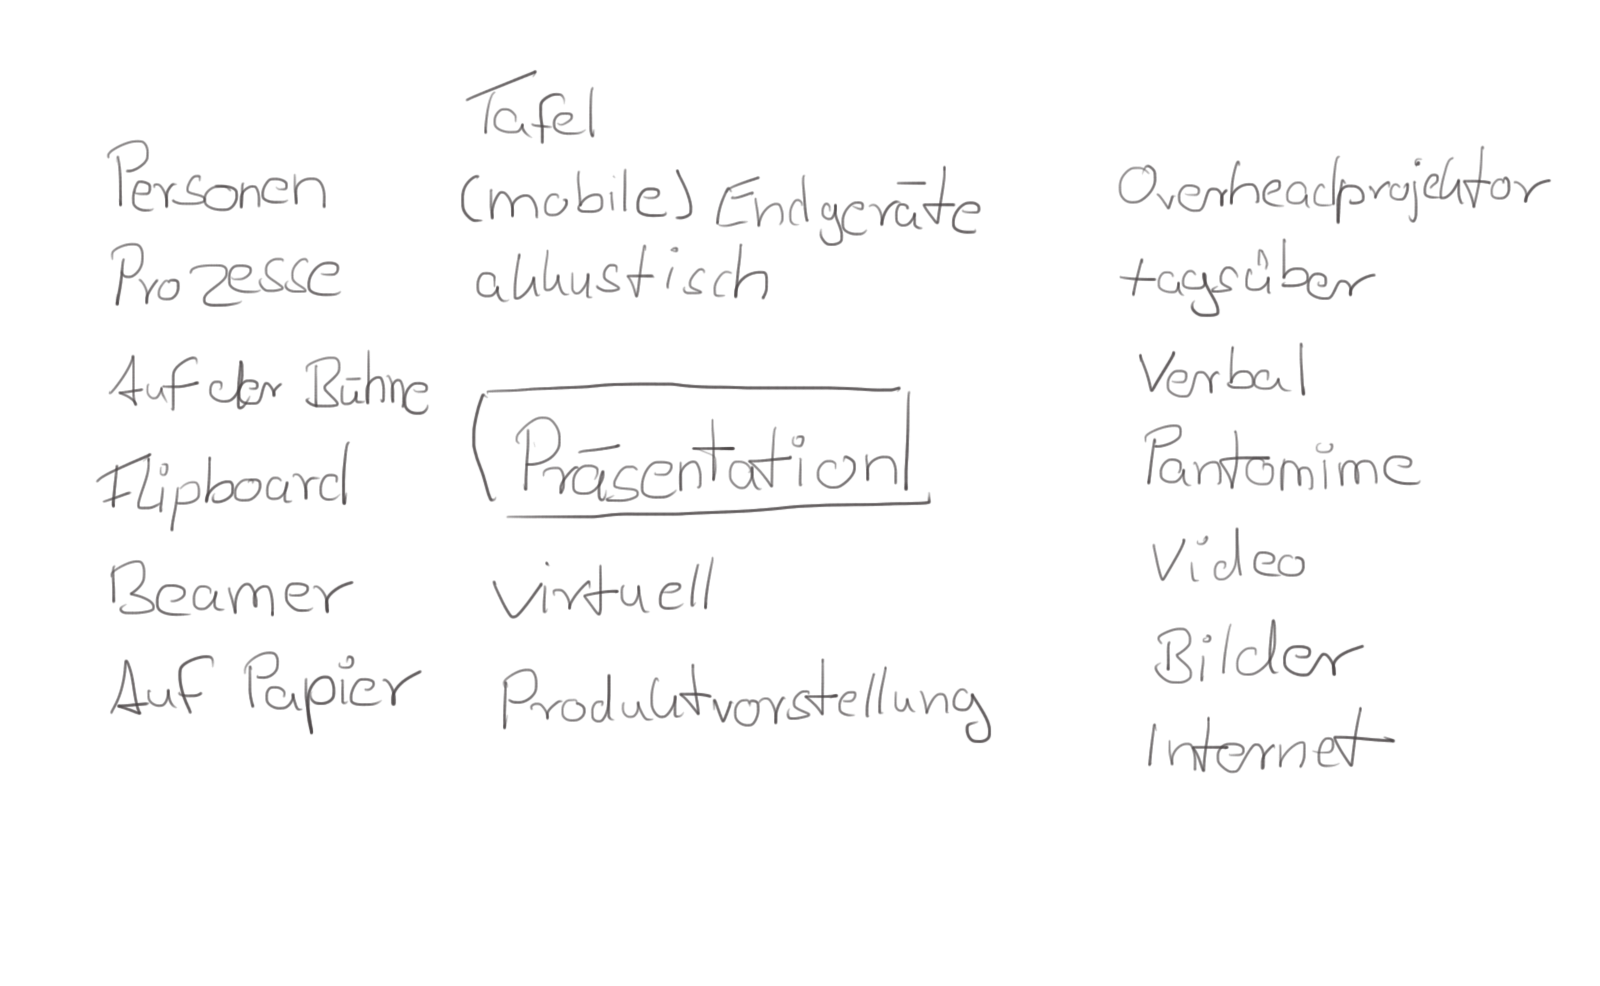 Personen
Prozesse
Auf der Bühne
Flipboard
Beamer
Auf Papier
Tafel
(mobile) Endgeräte
akkustisch
Präsentation
virtuell
Produktvorstellung
Overheadprojektor
tagsüber
Verbal
Pantomime
Video
Bilder
Internet